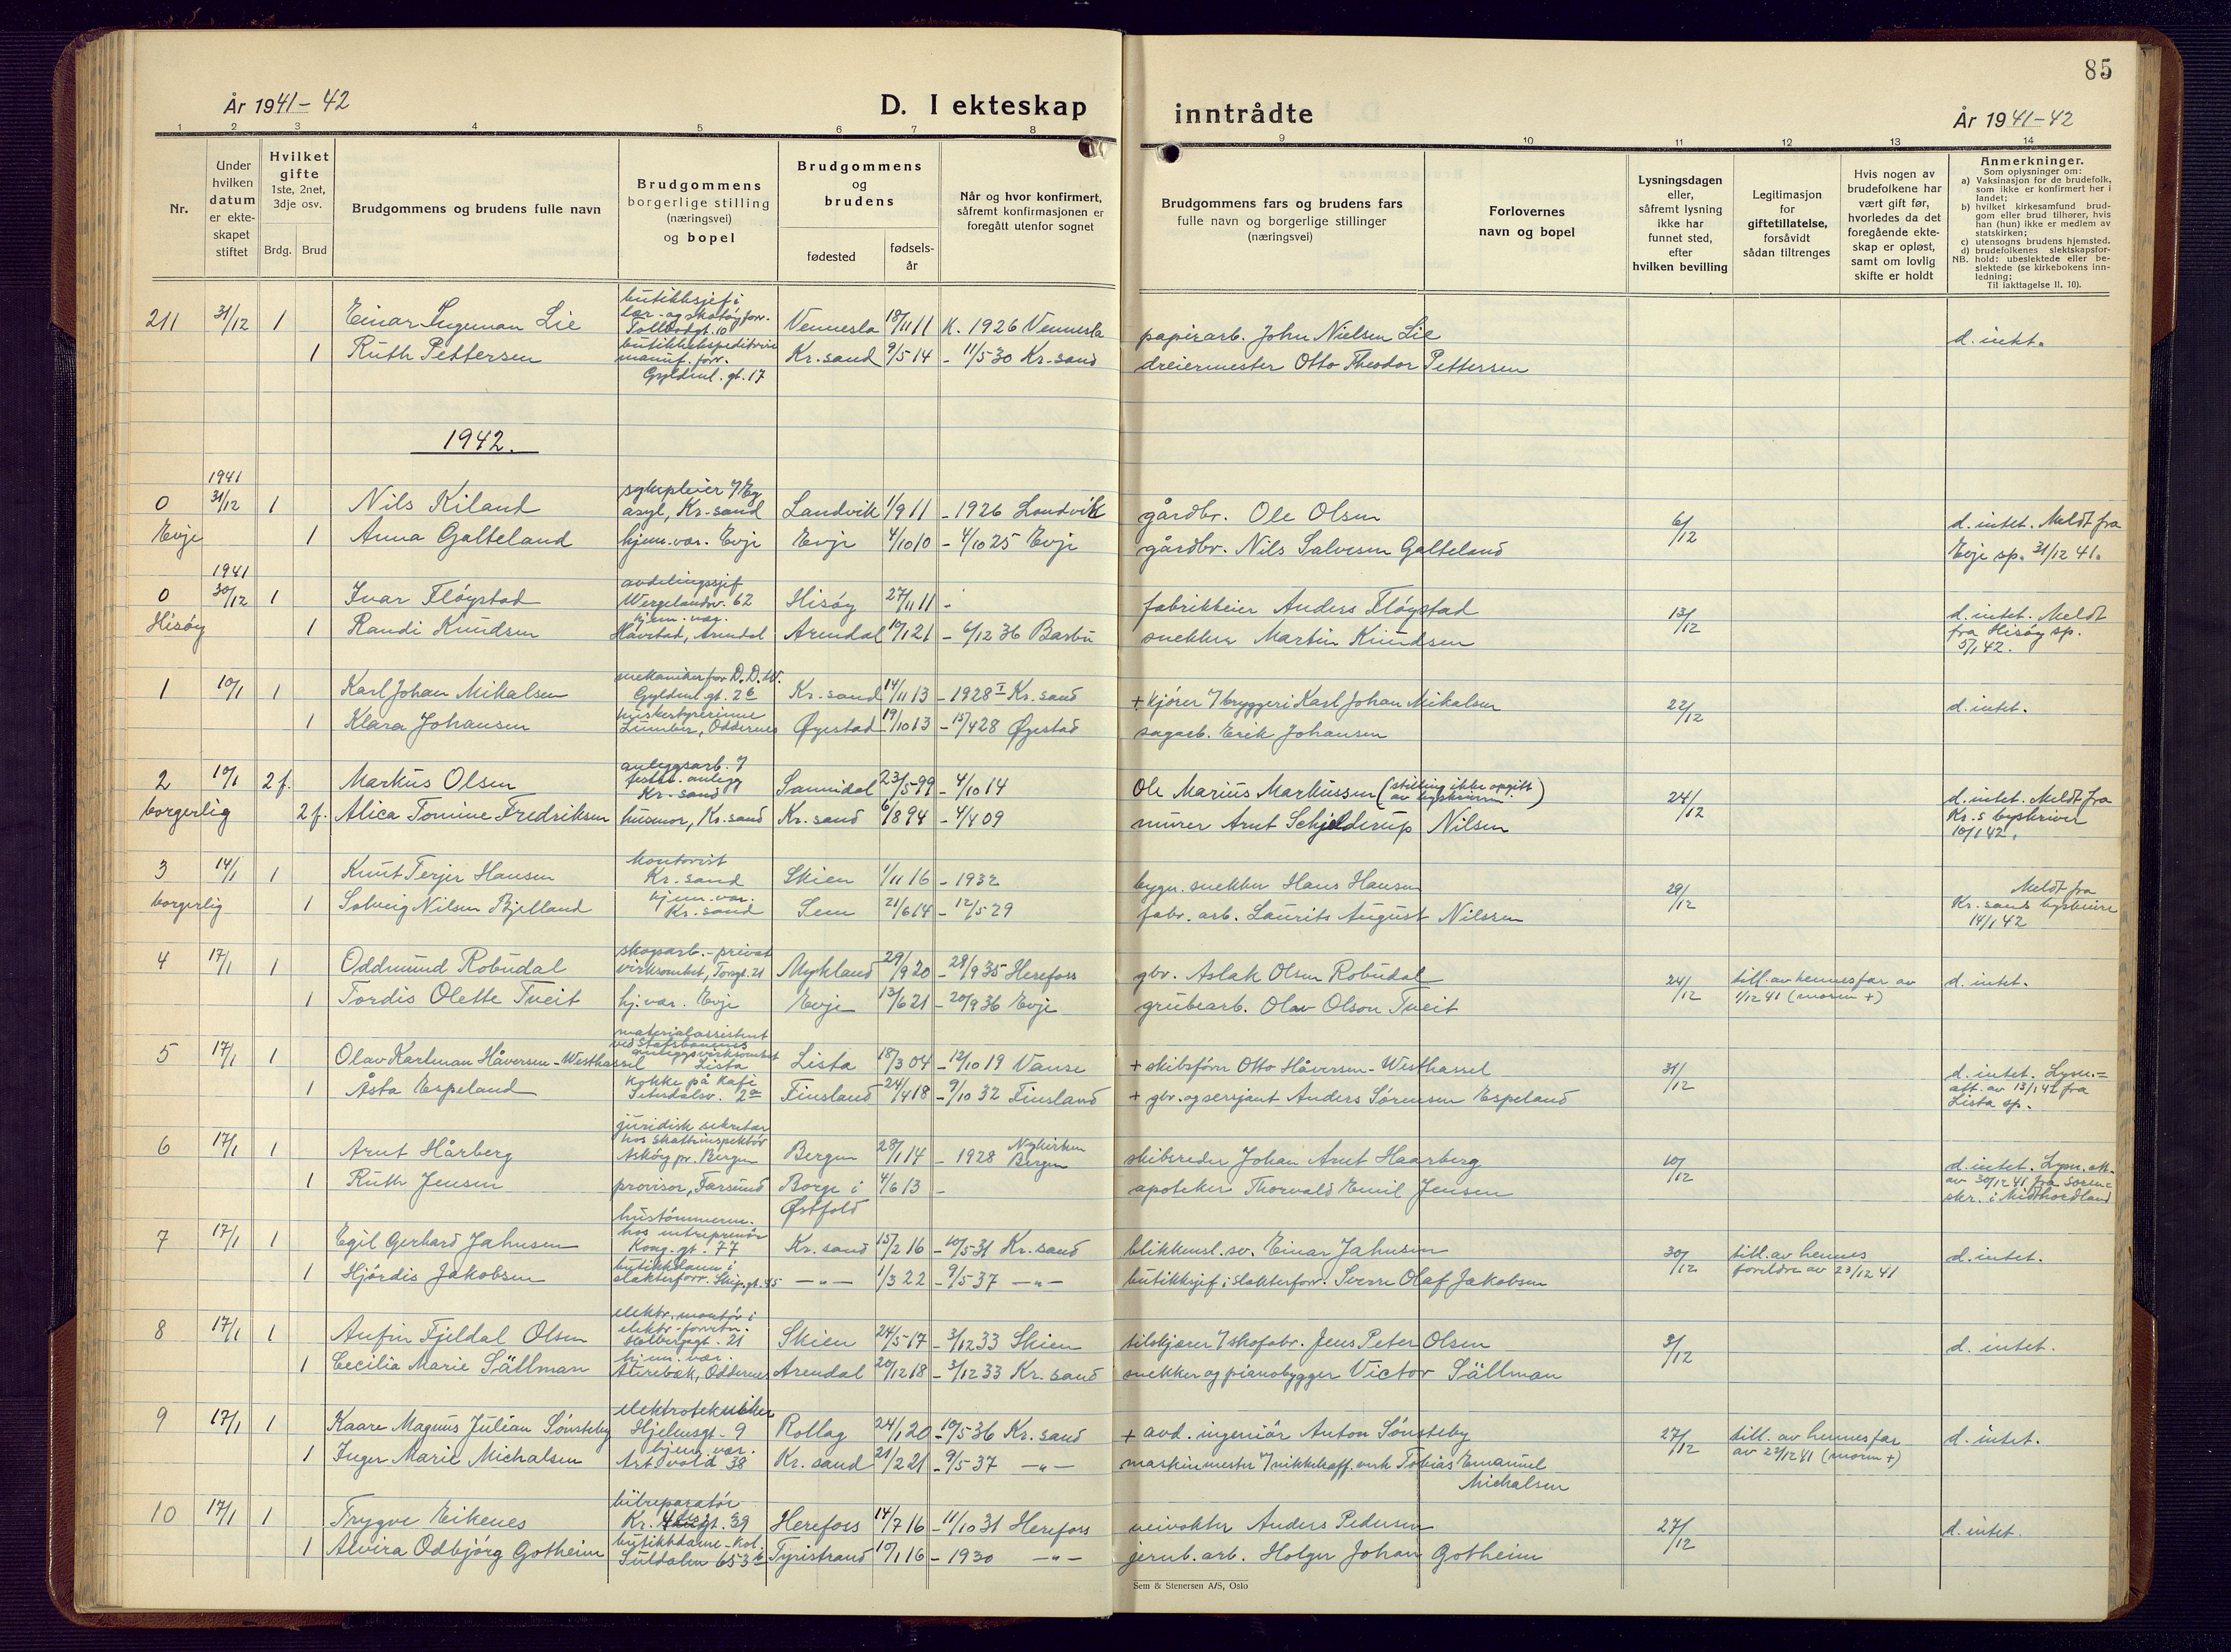 85
År 1941-42
D. I ekteskap inntrådte
År 1941-42
1 2 3 4 5 6 7 8 9 10 11 12 13 14
Nr.
Under hvilken datum er ekte-skapet stiftet
Hvilket gifte 1ste, 2net, 3dje osv.
Brdg. Brud
Brudgommens og brudens fulle navn
Brudgommens borgerlige stilling (næringsvei) og bopel
Brudgommens og brudens
fødested
fødsels-år
Når og hvor konfirmert, såfremt konfirmasjonen er foregått utenfor sognet
Brudgommens fars og brudens fars fulle navn og borgerlige stillinger (næringsvei)
Forlovernes navn og bopel
Lysningsdagen eller, såfremt lysning ikke har funnet sted, efter hvilken bevilling
Legitimasjon for giftetillatelse, forsåvidt sådan tiltrenges
Hvis nogen av brudefolkene har vært gift før, hvorledes da det foregående ekte-skap er opløst, samt om lovlig skifte er holdt
Anmerkninger.
Som oplysninger om:
a) Vaksinasjon for de brudefolk, som ikke er konfirmert her i landet;
b) hvilket kirkesamfund brud-gom eller brud tilhører, hvis han (hun) ikke er medlem av statskirken;
c) utensogns brudens hjemsted.
d) brudefolkenes slektskapsfor-hold: ubeslektede eller be-slektede (se kirkebokens inn-ledning;
NB. Til iakttagelse II. 10).
211 31/12 1 Einar Inguman Lie butikksjef i lær- og skotøyforr. Tollbodgt. 10 Vennesla 18/11 11 K. 1926 Vennesla papirarb. John Nielsen Lie d. intet.
1 Ruth Pettersen butikkekspeditrise manuf. forr. Gyldenl. gt. 17 Kr.sand 9/5 14 - 11/5 30 Kr.sand dreiermester Otto Theodor Pettersen
1942.
1941
0 31/12 1 Nils Kiland sykepleier v/ Eg asyl, Kr.sand Landvik 1/9 11 - 1926 Landvik gårdbr. Ole Olsen 6/12 d. intet. Meldt fra
Evje 1 Anna Galteland hjem.vær. Evje Evje 4/10 10 - 4/10 25 Evje gårdbr. Nils Salvesen Galteland Evje sp. 31/12 41.
1941
0 30/12 1 Ivar Fløystad avdelingssjef Wergelandsv. 62 Hisøy 27/11 11 - fabrikkeier Anders Fløystad 13/12 d. intet. Meldt
Hisøy 1 Randi Knudsen hjem. vær. Håvstad, Arendal Arendal 10/1 21 - 6/12 36 Barbu snekker Martin Knudsen fra Hisøy sp. 5/1 42.
1 10/1 1 Karl Johan Mikalsen mekaniker for D.D.W. Gyldenl. gt. 26 Kr.sand 14/11 13 - 1928 I Kr.sand + kjører v/ bryggeri Karl Johan Mikalsen 22/12 d. intet.
1 Klara Johansen husbestyrerinne Lumber, Oddernes Øyestad 19/10 13 - 15/4 28 Øyestad sagarb. Erik Johansen
2 10/1 2 f. Markus Olsen anleggsarb. v/ festn. anlegg Kr.sand Sannidal 23/5 99 - 4/10 14 Ole Marius Markussen (stilling ikke opgitt av byskriveren) 24/12 d. intet. Meldt fra
borgerlig 2 f. Alica Tomine Fredriksen husmor, Kr.sand Kr.sand 6/8 94 - 4/4 09 murer Arnt Schjelderup Nilsen Kr.s byskriver 10/1 42.
3 14/1 1 Knut Terjer Hansen kontorist Kr.sand Skien 1/11 16 - 1932 bygn. snekker Hans Hansen 29/12 Meldt fra
borgerlig 1 Solveig Nilsen Bjelland hjem. vær. Kr.sand Sem 21/6 14 - 12/5 29 fabr. arb. Laurits August Nilssen Kr.sands byskriver 14/1 42
4 17/1 1 Oddmund Robudal skogsarb. - privat virksomhet, Torvgt. 21 Mykland 29/9 20 - 29/9 35 Herefoss gbr. Aslak Olsen Robudal 24/12 till. av hennes far av 1/12 41 (moren +) d. intet.
1 Tordis Olette Tveit hj. vær. Evje Evje 13/6 21 - 20/9 36 Evje grubearb. Olav Olson Tveit
5 17/1 1 Olav Karlman Håversen-Westhassel materialassistent ved Statsbanenes anleggsvirksomhet Lista Lista 18/3 04 - 12/10 19 Vanse + skibsfører Otto Håversen-Westhassel 31/12 d. intet. Lysn.=
1 Åsta Espeland kokke på kafe Setesdalsv. 2a Finsland 24/4 18 - 9/10 32 Finsland + gbr. og sersjant Anders Sørensen Espeland att. av 13/1 42 fra Lista sp.
6 17/1 1 Arnt Hårberg juridisk sekretær hos skatteinspektør Askøy pr. Bergen Bergen 28/1 14 - 1928 Nykirken Bergen skibsreder Johan Arnt Haarberg 10/12 d. intet. Lysn. att.
1 Ruth Jensen provisor, Farsund Borge i Østfold 4/6 13 - apoteker Thorvald Emil Jensen av 30/12 41 fra soren= skr. i Midthordland
7 17/1 1 Egil Gerhard Jahnsen hustømmerm. hos entreprenør Kong. gt. 77 Kr.sand 15/2 16 - 10/5 31 Kr.sand blikkensl. sv. Einar Jahnsen 30/12 till. av hennes foreldre av 23/12 41 d. intet.
1 Hjørdis Jakobsen butikkdame i slakterforr. Skip. gt. 45 -"- 1/3 22 - 9/5 37 -"- butikksjef i slakterforr. Sverre Olaf Jakobsen
8 17/1 1 Anfin Fjeldal Olsen elektr. montør i elektr. forretn. Holbergsgt. 21 Skien 24/5 17 - 3/12 33 Skien tilskjærer v/ skofabr. Jens Peter Olsen 3/12 d. intet.
1 Cecilia Marie Sällman hjem. vær. Ålirebæk, Oddernes Arendal 20/12 18 - 3/12 33 Kr.sand snekker og pianobygger Victor Sällman
9 17/1 1 Kaare Magnus Julian Sønsteby elektrotekniker Hjelmsgt. 9 Rollag 24/1 20 - 10/5 36 Kr.sand + avd. ingeniør Anton Sønsteby 27/12 till. av hennes far av 22/12 41 (moren +) d. intet.
1 Inger Marie Michalsen hjem. vær. Art. vold 38 Kr.sand 21/2 21 - 9/5 37 -"- maskinmester v/ nikkelraff. verk Tobias Emanuel Michalsen
10 17/1 1 Trygve Eikenes bilreparatør Kr. 4des gt. 39 Herefoss 14/7 16 - 11/10 31 Herefoss veivokter Anders Pedersen 27/12 d. intet.
1 Alvira Odbjørg Gotheim butikkdame - kol. Suldalen 653b Tyristrand 19/1 16 - 1930 -"- jernb. arb. Holger Johan Gotheim
Sem & Stenersen A/S, Oslo